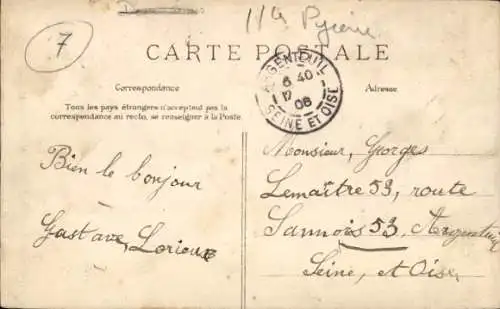 7
CARTE POSTALE
Correspondance
Tous les pays étrangers n'acceptent pas la
correspondance au recto, se renseigner à la Poste
Adresse
ARGENTEUIL
6 40
12
06
SEINE ET OISE
Bien le bonjour
Gustave, Lorieux
Monsieur, Georges
Lemaître 53, route
Sannois 53, Argenteuil
Seine, et Oise